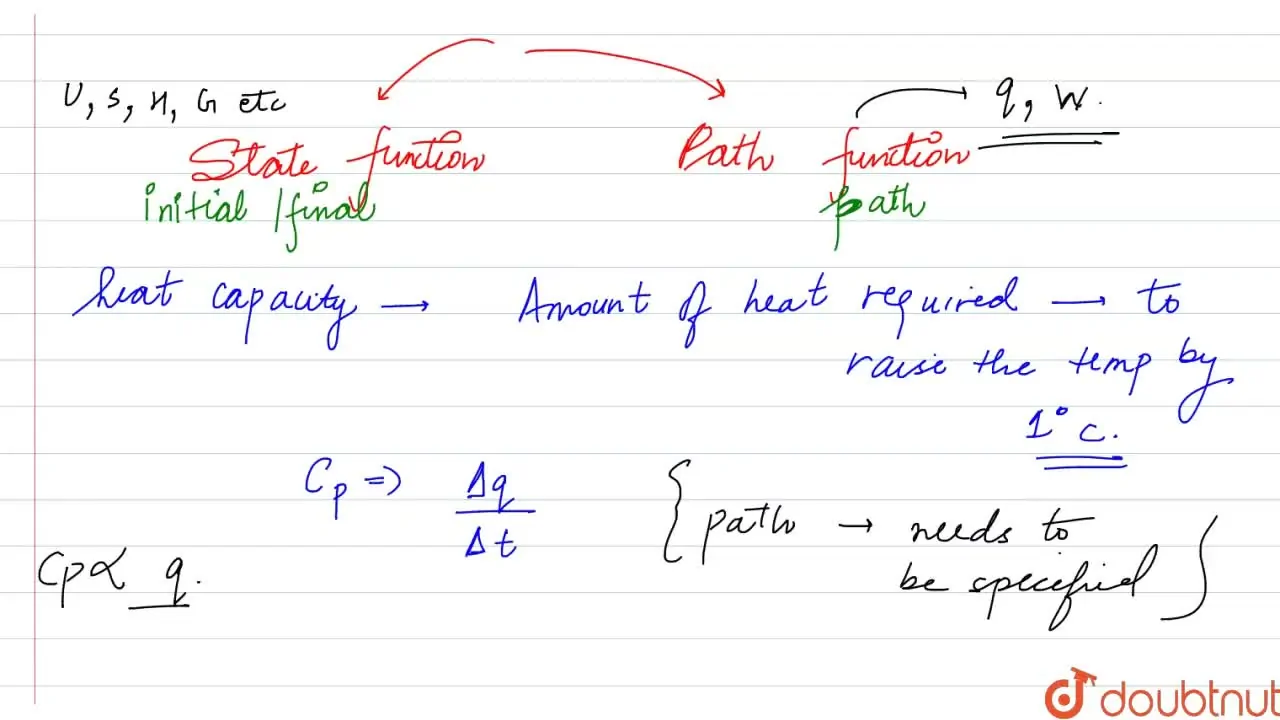 U, S, H, G etc
q, W.
State function
Path function
initial / final
path
heat capacity → Amount of heat required → to
raise the temp by
1° C.
Cp ⇒ Δq / Δt
{ path → needs to
be specified }
Cp ∝ q.
doubtnut